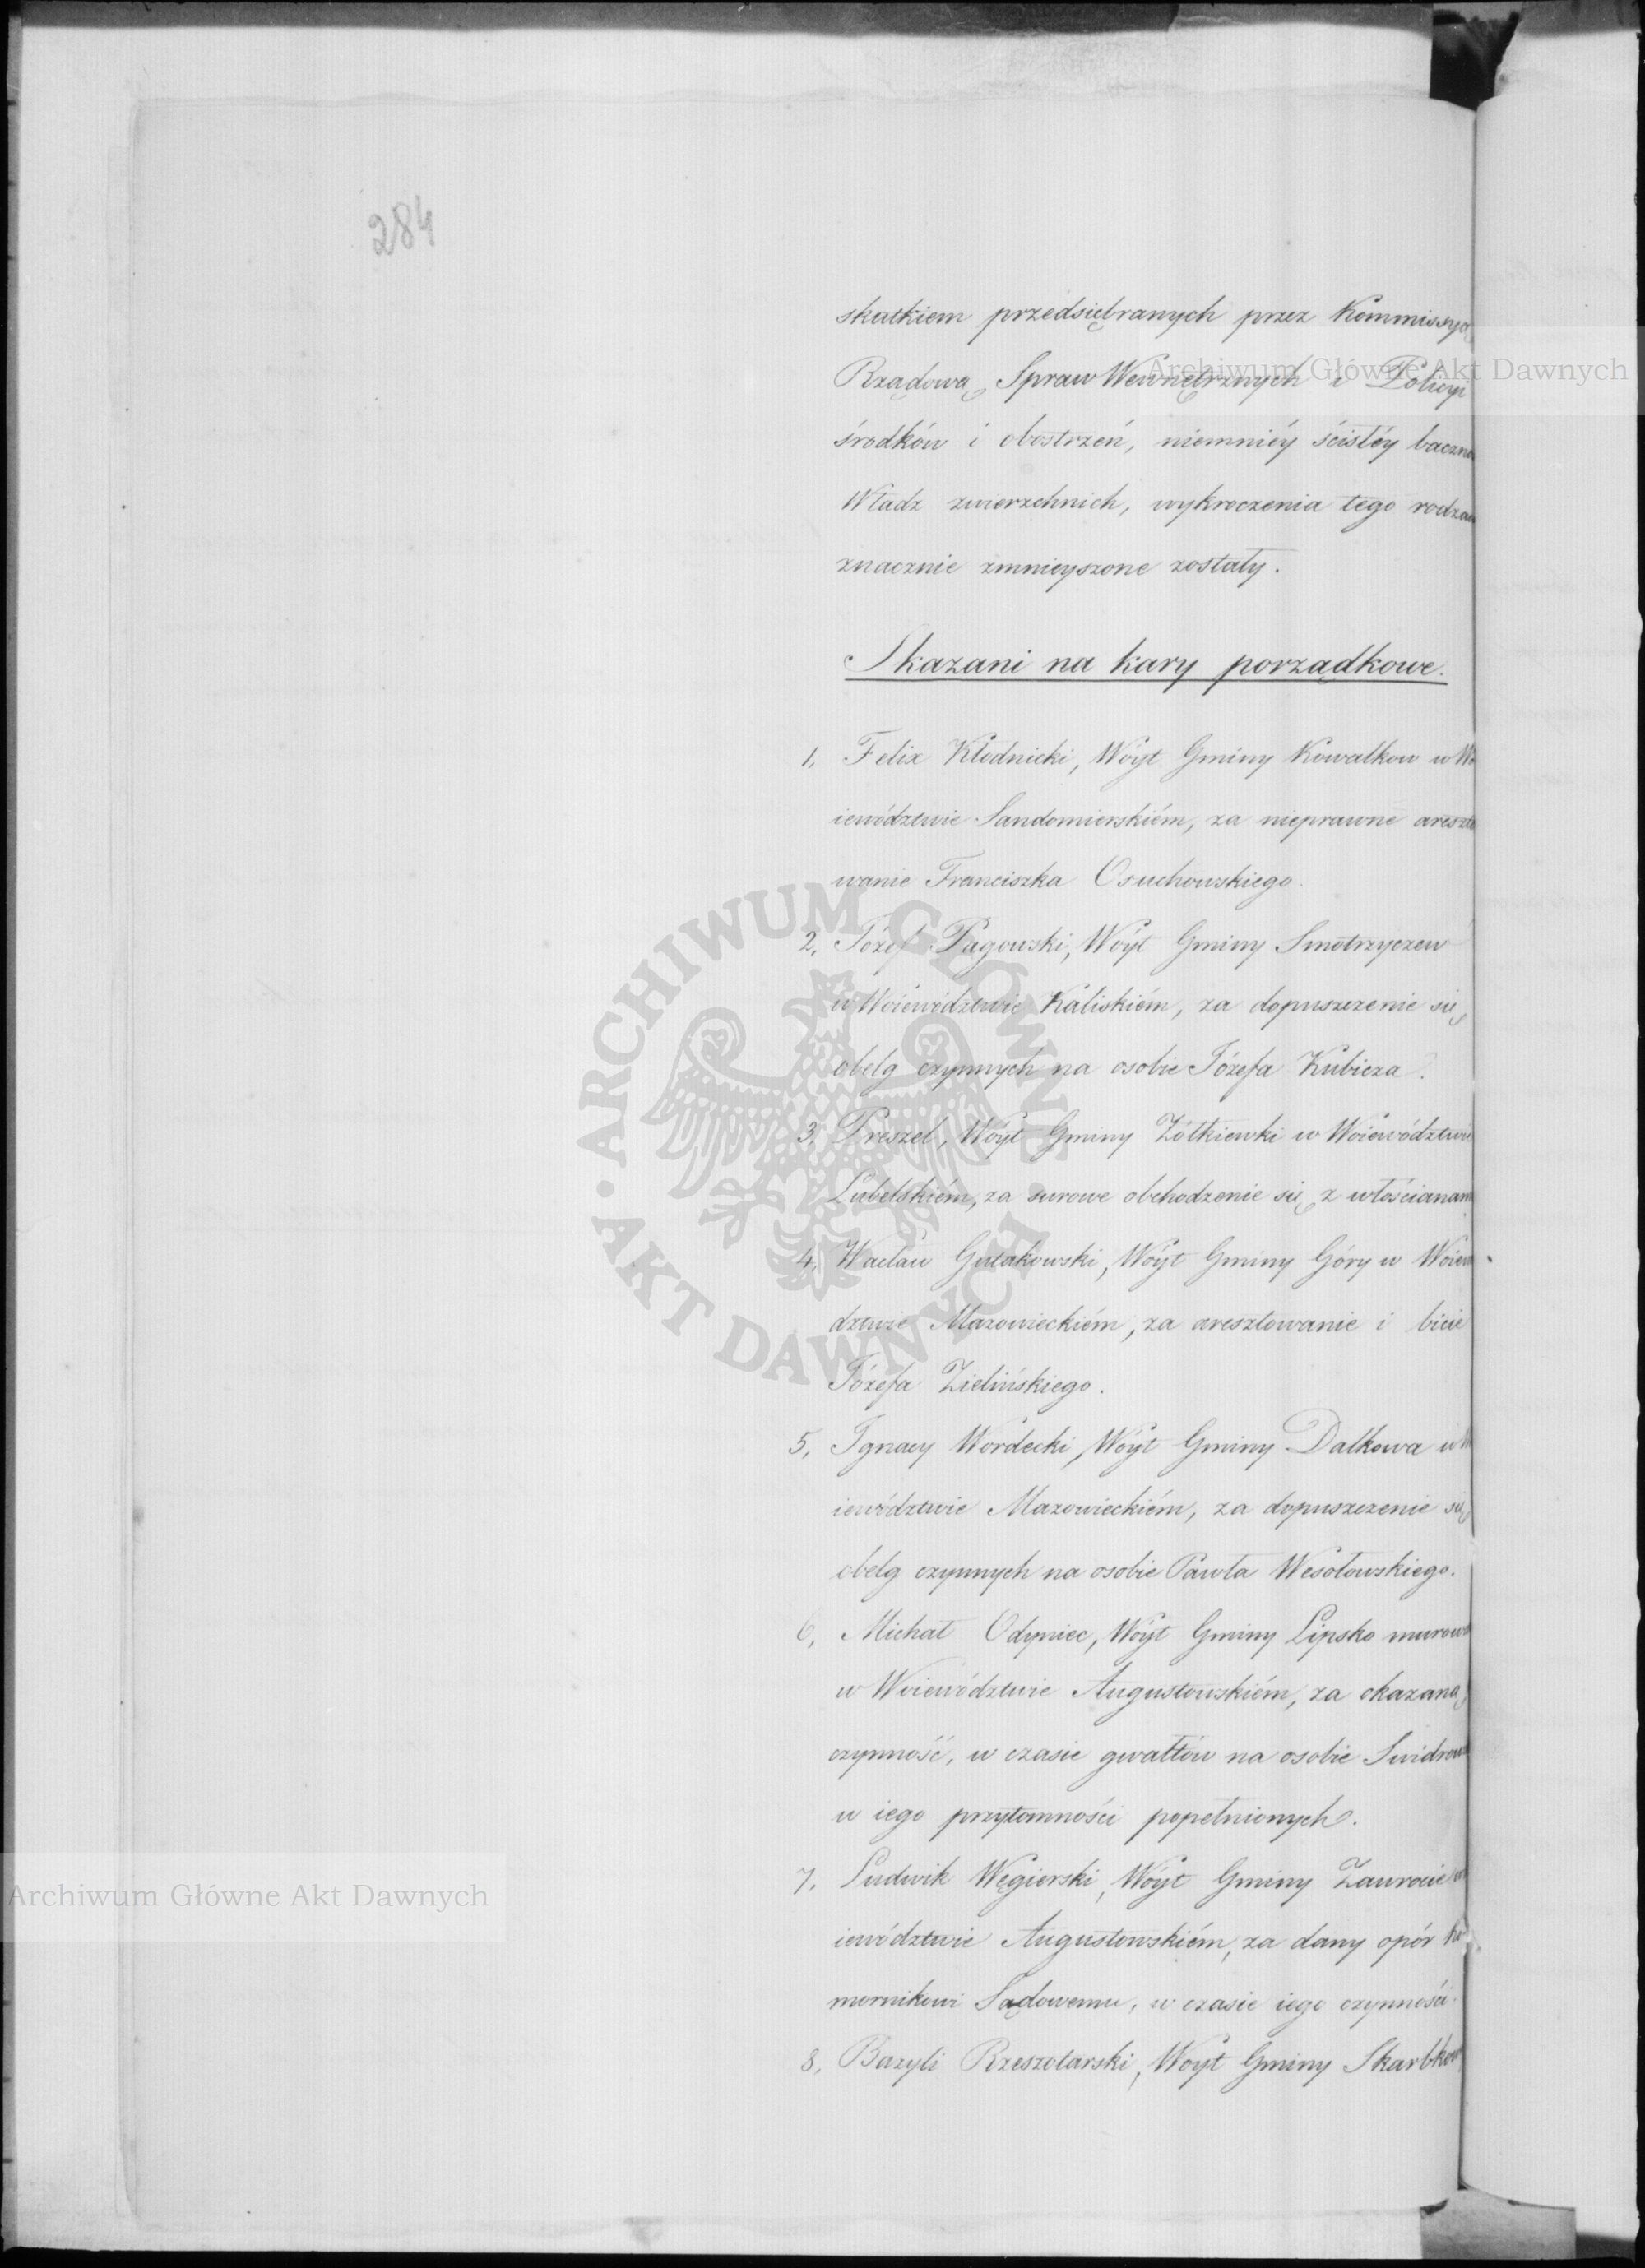 284
skutkiem przedsiębranych przez Kommissyą
Rządową Spraw Wewnętrznych i Policyi
środków i obostrzeń, niemniéy ścisłéy baczno
Władz zwierzchnich, wykroczenia tego rodza
znacznie zmnieyszone zostały.
Skazani na kary porządkowe.
1, Felix Kłodnicki, Wóyt Gminy Kowalkow w Wo
iewództwie Sandomierskiém, za nieprawne areszto
wanie Franciszka Osuchowskiego.
2, Józef Pągowski, Wóyt Gminy Smotrzyczew
w Woiewództwie Kaliskiém, za dopuszczenie się
obelg czynnych na osobie Józefa Kubicza.
3, Preszel, Wóyt Gminy Żółkiewki w Woiewództwie
Lubelskiém, za surowe obchodzenie się z włościanam
4, Wacław Gutakowski, Wóyt Gminy Góry w Woiewó
dztwie Mazowieckiém, za aresztowanie i bicie
Józefa Zielińskiego.
5, Ignacy Wordecki, Wóyt Gminy Dalkowa w
iewództwie Mazowieckiém, za dopuszczenie się
obelg czynnych na osobie Pawła Wesołowskiego.
6, Michał Odyniec, Wóyt Gminy Lipsko murowa
w Woiewództwie Augustowskiém, za okazaną
czynność, w czasie gwałtów na osobie Swidrow
w iego przytomności popełnionych.
7, Ludwik Węgierski, Wóyt Gminy Zawrocie
iewództwie Augustowskiém, za dany opór Ko
mornikowi Sądowemu, w czasie iego czynności.
8, Bazyli Rzeszotarski, Woyt Gminy Skarbkow
Archiwum Główne Akt Dawnych
ARCHIWUM GŁÓWNE • AKT DAWNYCH •
Archiwum Główne Akt Dawnych